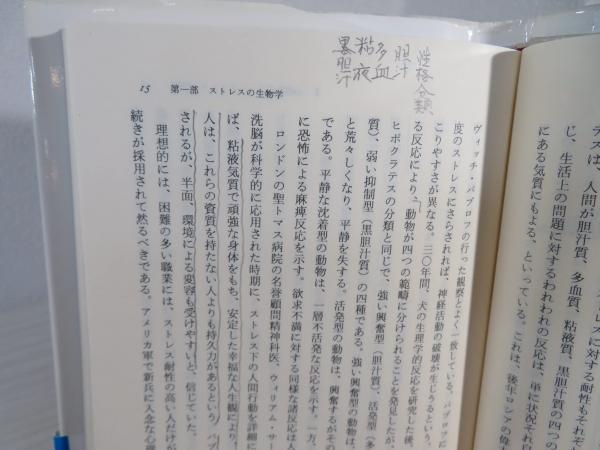 性格分類
胆汁
多血
粘液
黒胆汁
15 第一部 ストレスの生物学
テスは、人間が胆汁質、多血質、粘液質、黒胆汁質の四つの
じ、生活上の問題に対するわれわれの反応は、単に状況それ自
にある気質にもよる、といっている。これは、後年ロシアの偉大
ヴィッチ・パブロフの行った観察とよく一致している。パブロフに
度のストレスにさらされれば、神経活動の破壊が生じうるという、
こりやすさが異なる。三〇年間、犬の生理学的反応を研究した後、
る反応により、動物が四つの範疇に分けられることを発見したが、
ヒポクラテスの分類と同じで、強い興奮型（胆汁質）、活発型（多
質）、弱い抑制型（黒胆汁質）の四種である。強い興奮型の動物は、
と荒々しくなり、平静を失する。活発型の動物は、興奮するがその
である。平静な沈着型の動物は、一層不活発な反応を示す。一方、
に恐怖による麻痺反応を示す。欲求不満に対する同様な諸反応は人
ロンドンの聖トマス病院の名誉顧問精神科医、ウィリアム・サー
洗脳が科学的に応用された時期に、ストレス下の人間行動を詳細に
ば、粘液気質で頑強な身体をもち、安定した幸福な人生観により、
人は、これらの資質を持たない人よりも持久力があるという。パブ
されるが、半面、環境による変容も受けやすいと、信じていた。
理想的には、困難の多い職業には、ストレス耐性の高い人だけが
続きが採用されて然るべきである。アメリカ軍で新兵に入念な心理